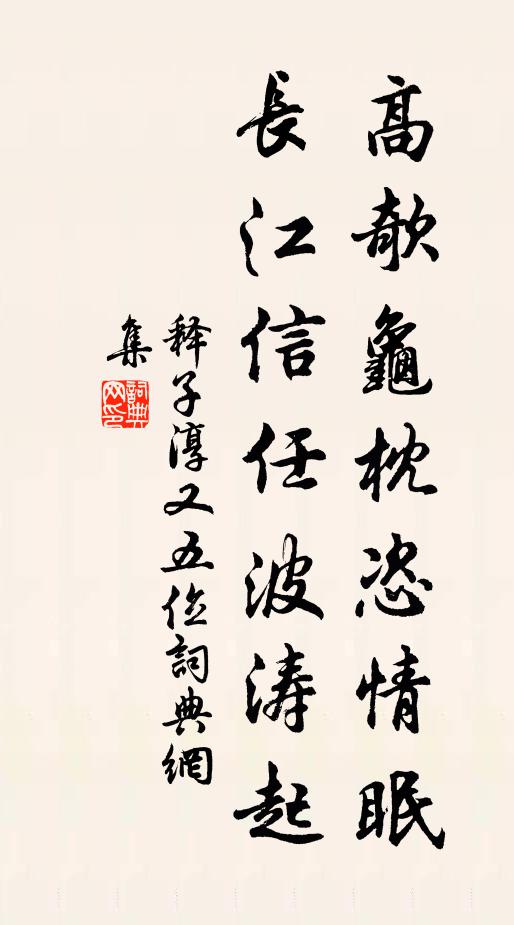 高欹龜枕恣情眠
長江信任波濤起
释子淳又五位詞典網
集
詞典網印